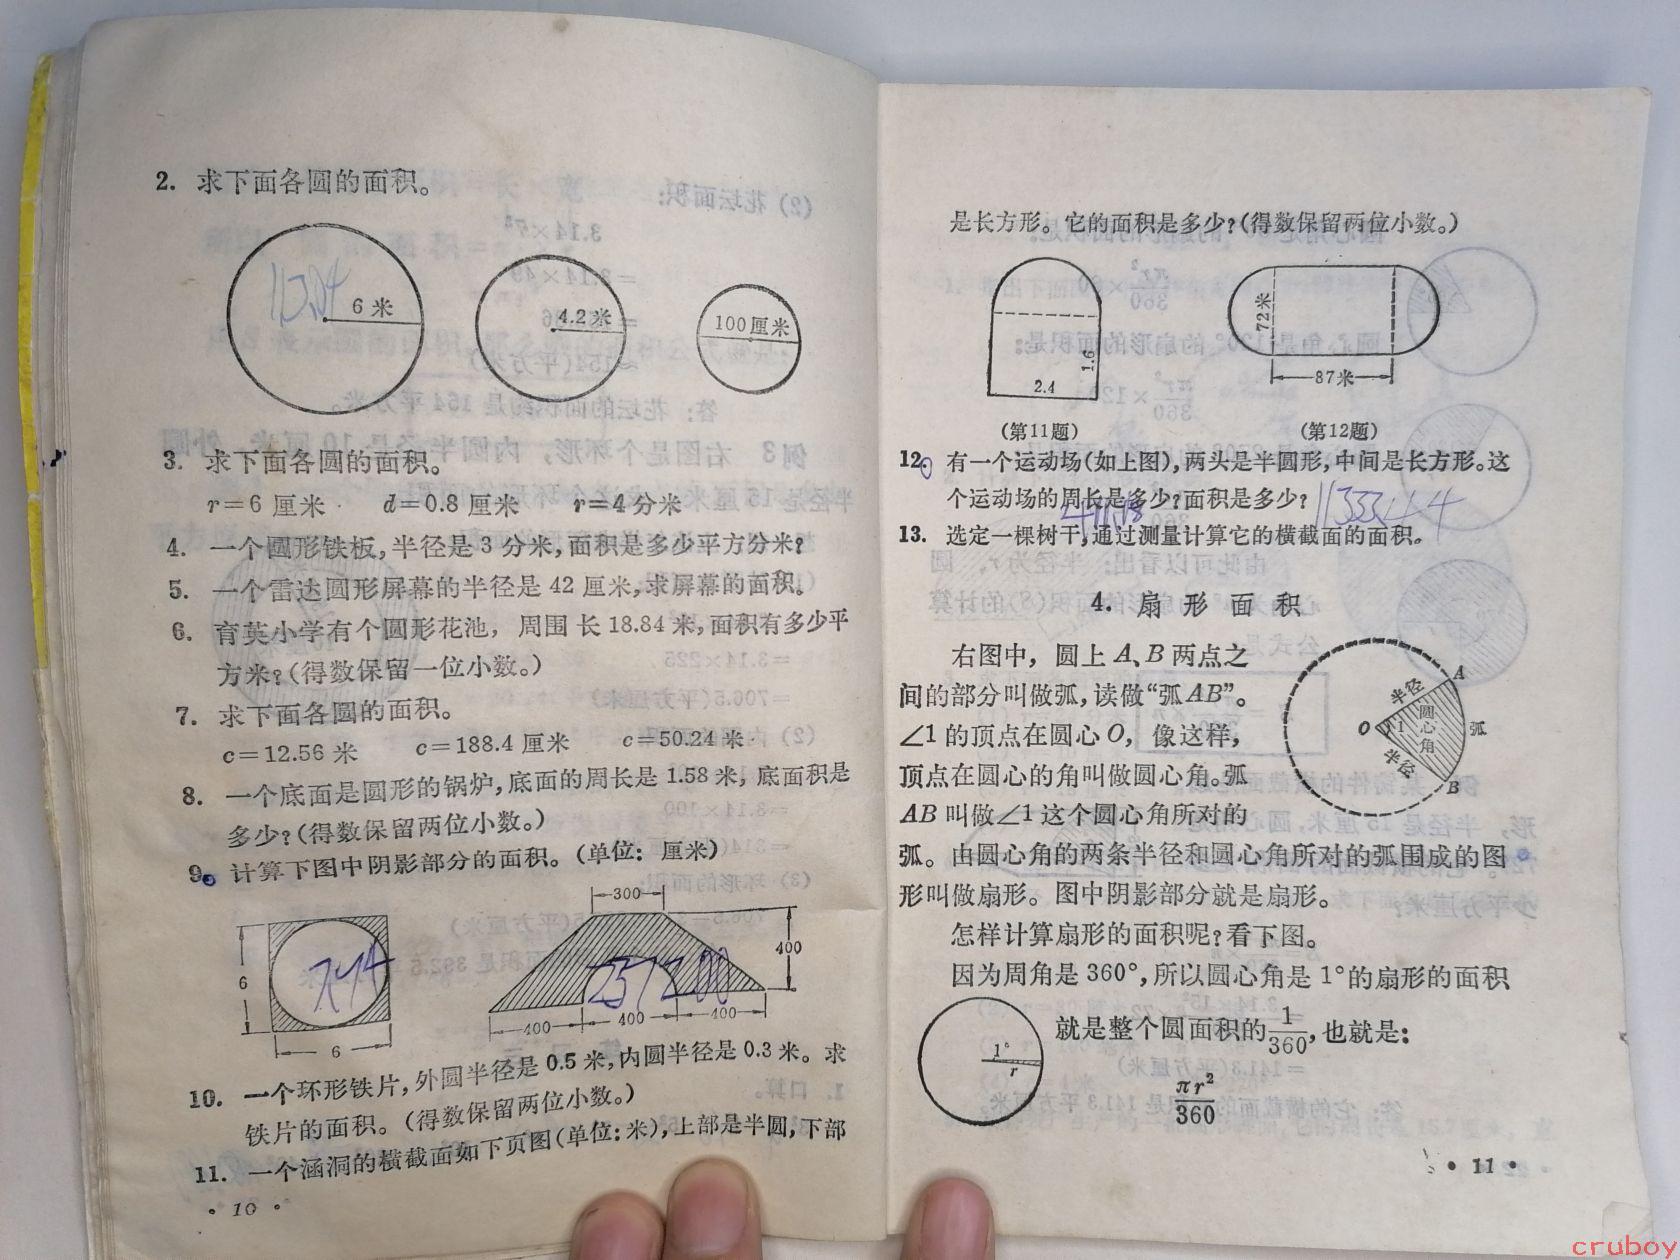 2. 求下面各圆的面积。
113.04
6 米
4.2 米
100 厘米
3. 求下面各圆的面积。
r=6 厘米 d=0.8 厘米 r=4 分米
4. 一个圆形铁板,半径是 3 分米,面积是多少平方分米?
5. 一个雷达圆形屏幕的半径是 42 厘米,求屏幕的面积。
6. 育英小学有个圆形花池, 周围长 18.84 米,面积有多少平
方米?(得数保留一位小数。)
7. 求下面各圆的面积。
c=12.56 米 c=188.4 厘米 c=50.24 米
8. 一个底面是圆形的锅炉,底面的周长是 1.58 米, 底面积是
多少?(得数保留两位小数。)
9. 计算下图中阴影部分的面积。(单位: 厘米)
6
6
300
400
400
400
400
10. 一个环形铁片,外圆半径是 0.5 米,内圆半径是 0.3 米。求
铁片的面积。(得数保留两位小数。)
11. 一个涵洞的横截面如下页图(单位:米),上部是半圆,下部
• 10 •
是长方形。它的面积是多少?(得数保留两位小数。)
1.6
2.4
72米
87米
(第11题)
(第12题)
12. 有一个运动场(如上图),两头是半圆形,中间是长方形。这
个运动场的周长是多少?面积是多少?
13. 选定一棵树干,通过测量计算它的横截面的面积。
4. 扇形面积
右图中, 圆上 A、B 两点之
间的部分叫做弧,读做“弧 AB”。
∠1 的顶点在圆心 O, 像这样,
顶点在圆心的角叫做圆心角。弧
AB 叫做∠1 这个圆心角所对的
弧。由圆心角的两条半径和圆心角所对的弧围成的图
形叫做扇形。图中阴影部分就是扇形。
A
半径
O
1
圆心角
弧
半径
B
怎样计算扇形的面积呢?看下图。
因为周角是 360°,所以圆心角是 1°的扇形的面积
就是整个圆面积的 1/360,也就是:
1°
r
πr²/360
• 11 •
cruboy